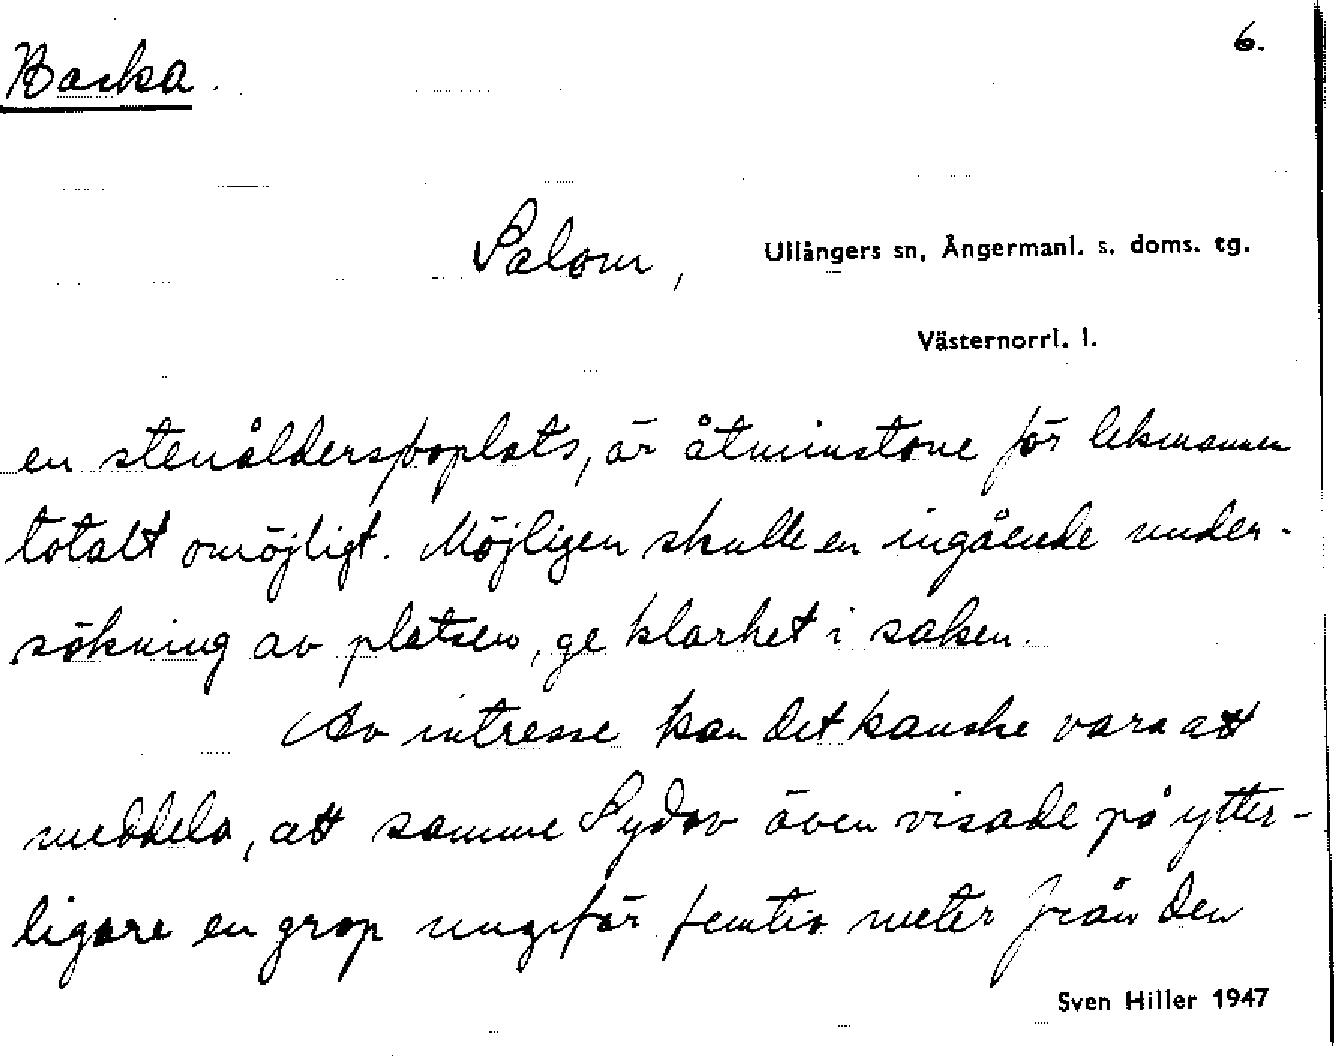 6.
Backa.
Salom, Ullångers sn, Ångermanl. s. doms. tg.
Västernorrl. l.
en stenåldersboplats, är åtminstone för lekmannen
totalt omöjligt. Möjligen skulle en ingående under-
sökning av platsen, ge klarhet i saken.
Av intresse kan det kanske vara att
meddela, att samme Sydov även visade på ytter-
ligare en grop ungefär femtio meter från den
Sven Hiller 1947